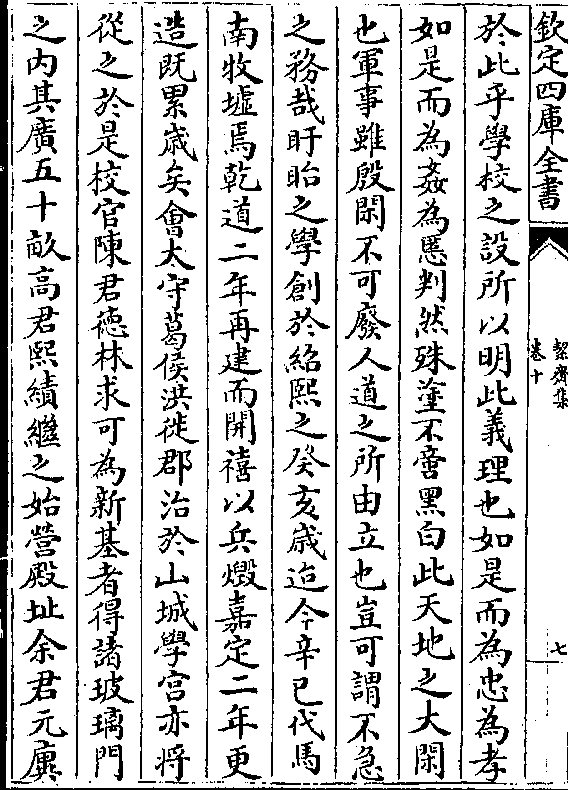 欽定四庫全書
絜齋集
卷十
七
於此乎學校之設所以明此義理也如是而為忠為孝
如是而為姦為慝判然殊塗不啻黑白此天地之大閑
也軍事雖殷閑不可廢人道之所由立也豈可謂不急
之務哉盱眙之學創於紹熙之癸亥歲迨今辛巳代馬
南牧墟焉乾道二年再建而開禧以兵燬嘉定二年更
造既累歲矣會太守葛侯洪徙郡治於山城學宮亦將
從之於是校官陳君德林求可為新基者得諸玻璃門
之内其廣五十畝高君熙績繼之始營殿址余君元廙